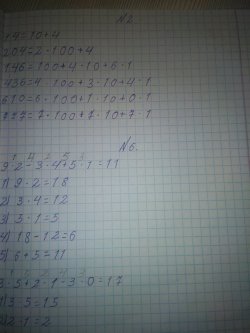 №2.
14=10+4
204=2·100+4
146=100+4·10+6·1
436=4·100+3·10+4·1
610=6·100+1·10+0·1
777=7·100+7·10+7·1
№6.
1 4 2 5 3
9·2-3·4+5·1=11
1) 9·2=18
2) 3·4=12
3) 5·1=5
4) 18-12=6
5) 6+5=11
3·5+2·1-3·0=17
1) 3·5=15
2) 2·1=2